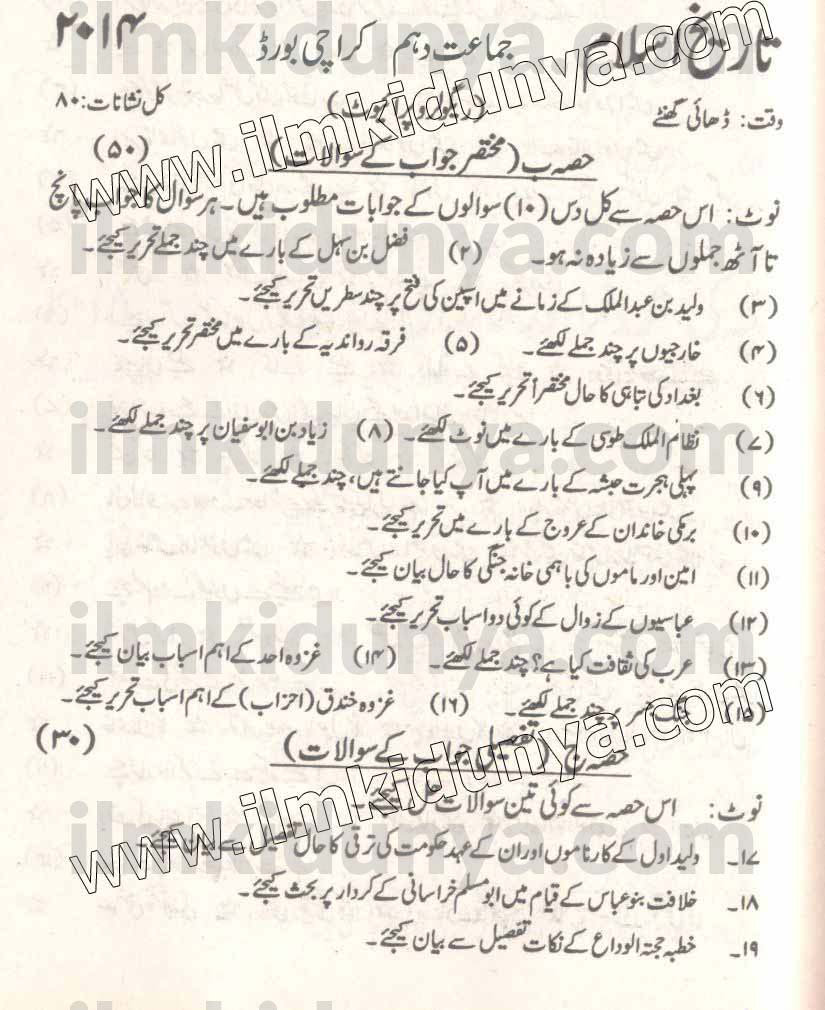 تاریخ اسلام جماعت دہم کراچی بورڈ ۲۰۱۴
وقت: ڈھائی گھنٹے (ریگولر و پرائیوٹ) کل نشانات: ۸۰
حصہ ب (مختصر جواب کے سوالات) (۵۰)
نوٹ: اس حصہ سے کل دس (۱۰) سوالوں کے جوابات مطلوب ہیں۔ ہر سوال کا جواب پانچ
تا آٹھ جملوں سے زیادہ نہ ہو۔ (۲) فضل بن سہل کے بارے میں چند جملے تحریر کیجئے۔
(۳) ولید بن عبدالملک کے زمانے میں اسپین کی فتح پر چند سطریں تحریر کیجئے۔
(۴) خارجیوں پر چند جملے لکھئے۔ (۵) فرقہ رواندیہ کے بارے میں مختصر تحریر کیجئے۔
(۶) بغداد کی تباہی کا حال مختصراً تحریر کیجئے۔
(۷) نظام الملک طوسی کے بارے میں نوٹ لکھئے۔ (۸) زیاد بن ابوسفیان پر چند جملے لکھئے۔
(۹) پہلی ہجرت حبشہ کے بارے میں آپ کیا جانتے ہیں، چند جملے لکھئے۔
(۱۰) برمکی خاندان کے عروج کے بارے میں تحریر کیجئے۔
(۱۱) امین اور ماموں کی باہمی خانہ جنگی کا حال بیان کیجئے۔
(۱۲) عباسیوں کے زوال کے کوئی دو اسباب تحریر کیجئے۔
(۱۳) عرب کی ثقافت کیا ہے؟ چند جملے لکھئے۔ (۱۴) غزوہ احد کے اہم اسباب بیان کیجئے۔
(۱۵) جنگ جسر پر چند جملے لکھئے۔ (۱۶) غزوہ خندق (احزاب) کے اہم اسباب تحریر کیجئے۔
حصہ ج (تفصیلی جواب کے سوالات) (۳۰)
نوٹ: اس حصہ سے کوئی تین سوالات حل کیجئے۔
۱۷۔ ولید اول کے کارناموں اور ان کے عہد حکومت کی ترقی کا حال تفصیل سے بیان کیجئے۔
۱۸۔ خلافت بنو عباس کے قیام میں ابو مسلم خراسانی کے کردار پر بحث کیجئے۔
۱۹۔ خطبہ حجتہ الوداع کے نکات تفصیل سے بیان کیجئے۔
www.ilmkidunya.com
www.ilmkidunya.com
ilmkidunya.com
ilmkidunya.com
ilmkidunya.com
ilmkidunya.com
ilmkidunya.com
ilmkidunya.com